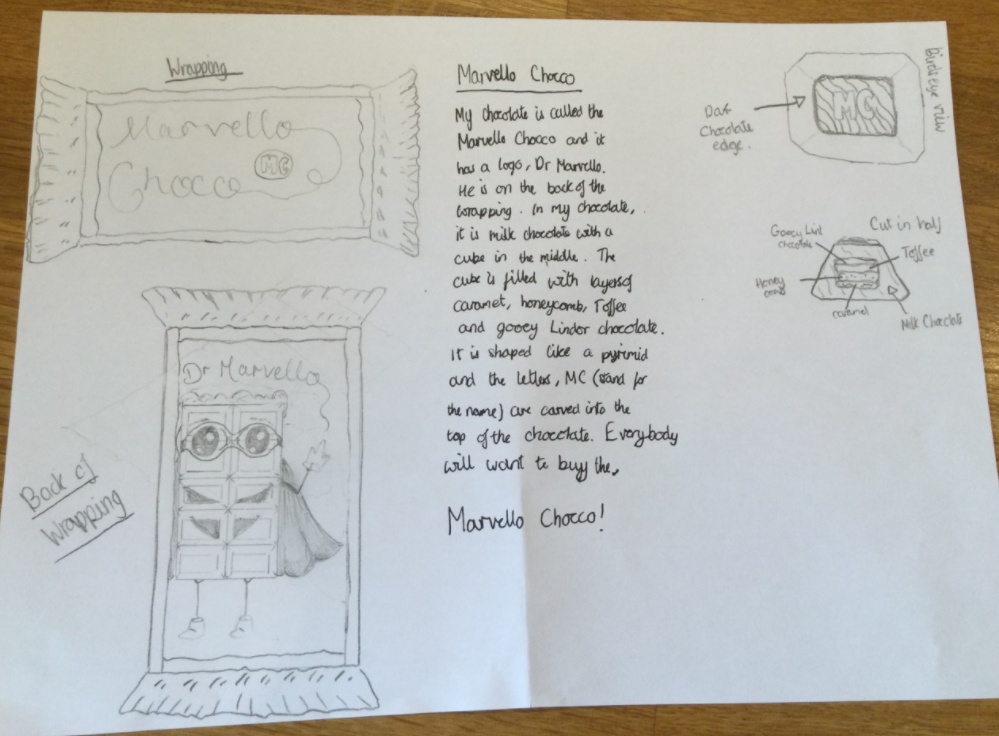 Wrapping
Marvello
Chocco
MC
Back of
Wrapping
Dr Marvello
Marvello Chocco
My chocolate is called the
Marvello Chocco and it
has a logo, Dr Marvello.
He is on the back of the
wrapping. In my chocolate,
it is milk chocolate with a
cube in the middle. The
cube is filled with layers of
caramel, honeycomb, Toffee
and gooey Lindor chocolate.
It is shaped like a pyrimid
and the letters, MC (stand for
the name) are carved into the
top of the chocolate. Everybody
will want to buy the,
Marvello Chocco!
Birdseye view
MC
Dark
Chocolate
edge.
Cut in half
Gooey Lint
chocolate
Toffee
Honey
comb
caramel
Milk Chocolate